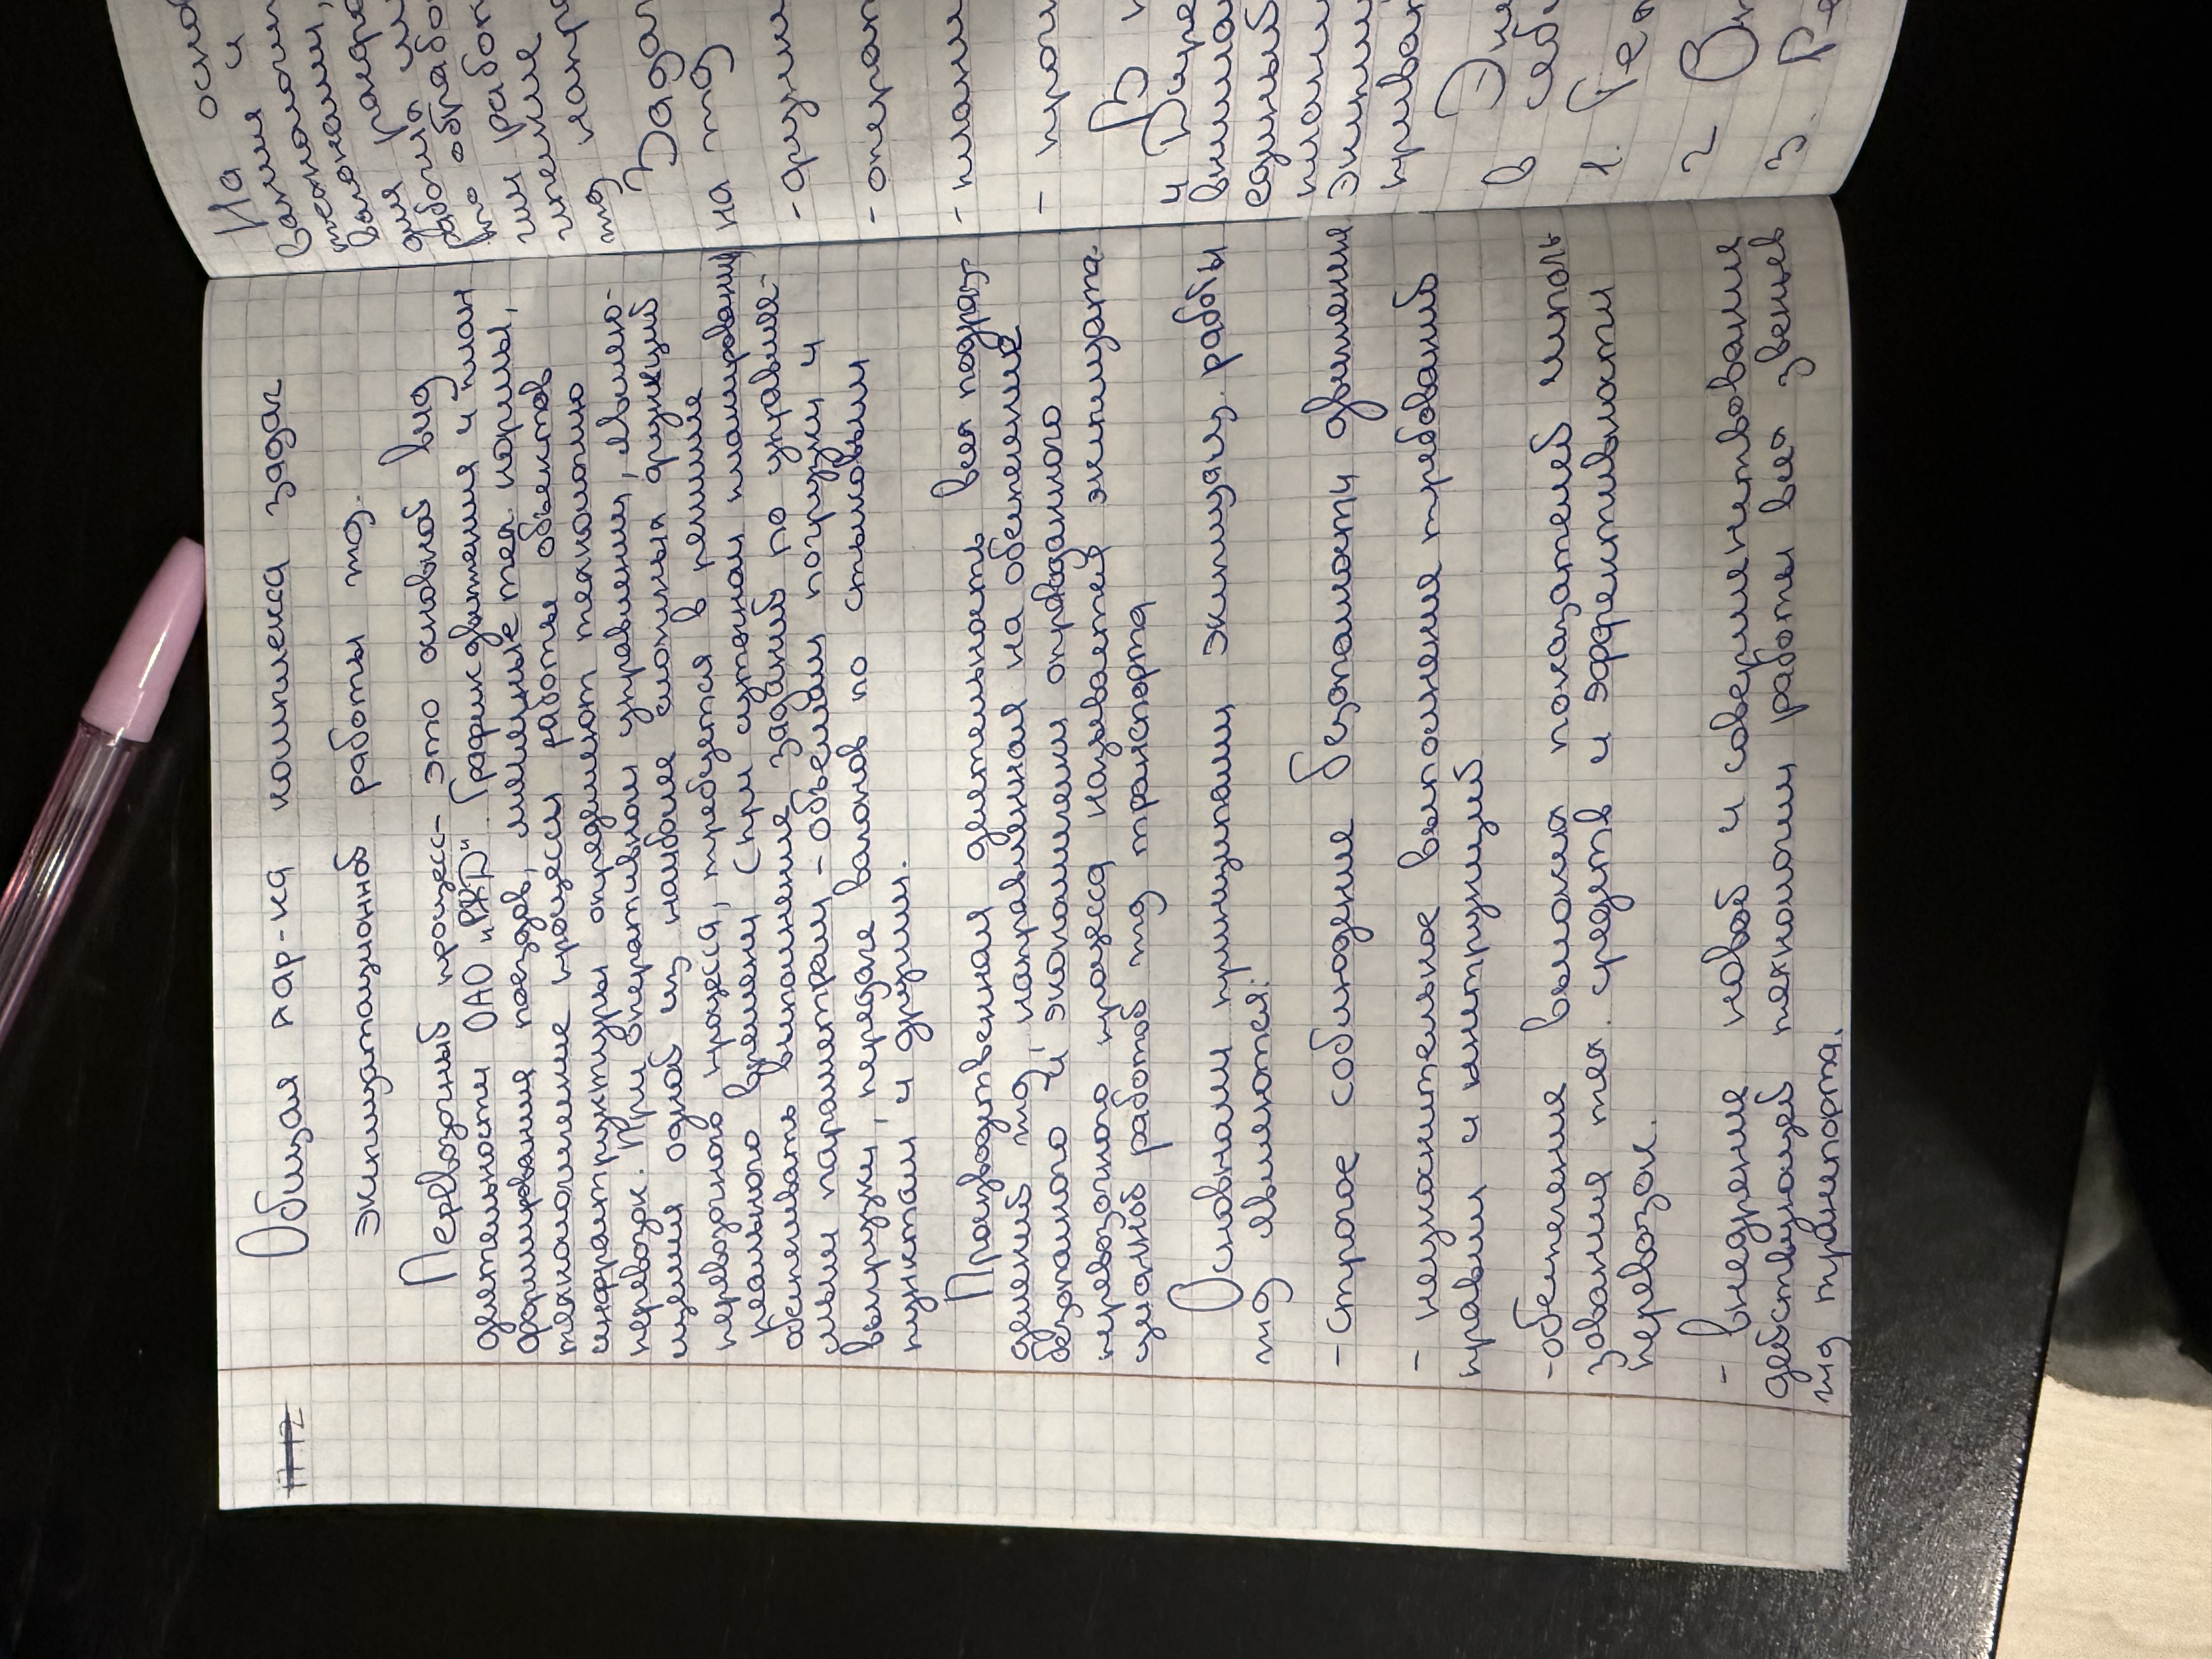 Общая хар-ка комплекса задач
эксплуатационной работы жд.
Перевозочный процесс- это основной вид
деятельности ОАО „РЖД“ График движения и план
формирования поездов, месячные тех. нормы,
технологические процессы работы объектов
инфраструктуры определяют технологию
перевозок. При оперативном управлении, являю-
щемся одной из наиболее сложных функций
перевозочного процесса, требуется в режиме
реального времени (при суточном планировании)
обеспечивать выполнение заданий по управляе-
мым параметрам - объемам погрузки и
выгрузки, передаче вагонов по стыковым
пунктам и другим.
Производственная деятельность всех подраз-
делений жд, направленная на обеспечение
безопасного и экономически оправданного
перевозочного процесса называется эксплуата-
ционной работой жд транспорта
Основными принципами эксплуатац. работы
жд являются:
- строгое соблюдение безопасности движения
- неукоснительное выполнение требований
правил и инструкций
- обеспечение высоких показателей исполь
зования тех. средств и эффективности
перевозок.
- внедрение новой и совершенствования
действующей технологии работы всех звеньев
жд транспорта.
На осно
задач
на жд
- план
В
и Дире
внима
единый
1. Ген
3. Ре